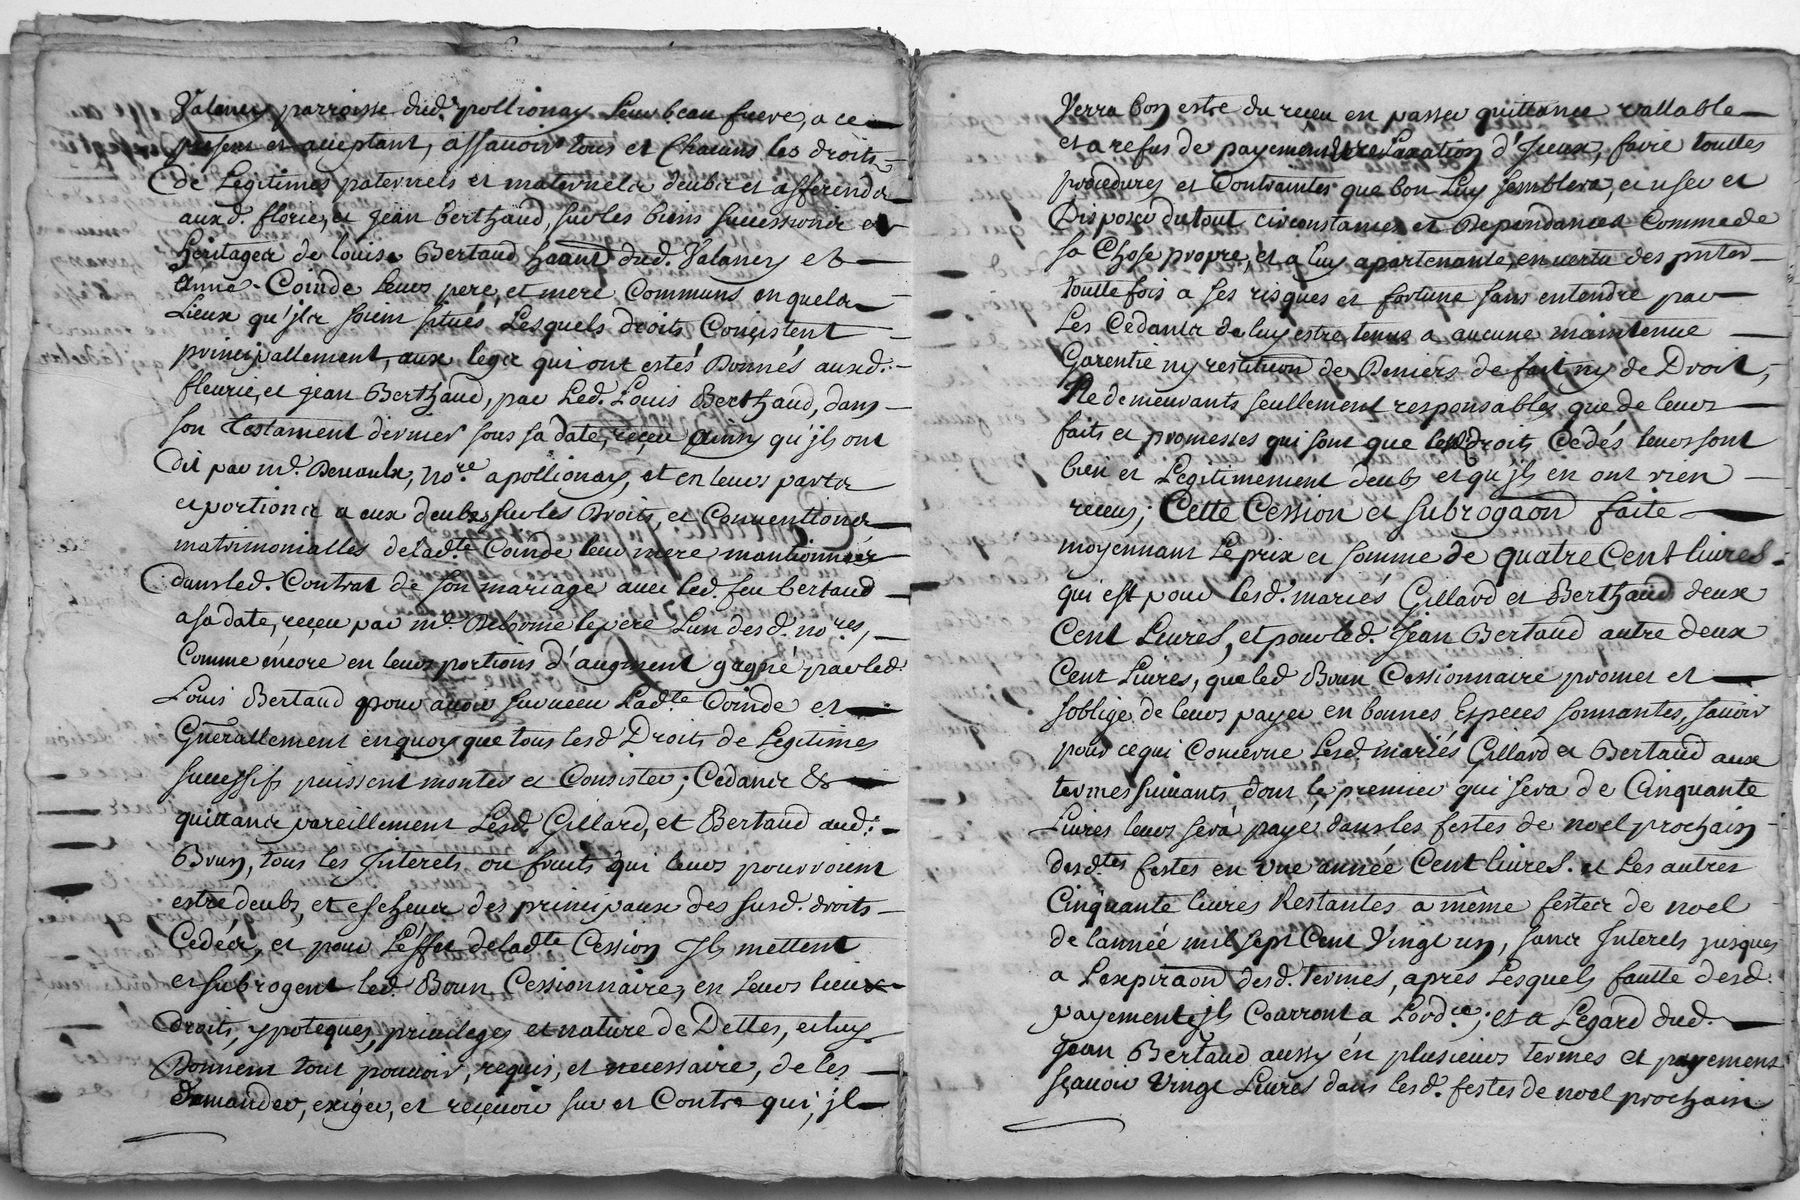 Valancy parroisse dud. pollionay Leur beau frere, a ce
present et acceptant, assavoir tous et Chacuns les droits
de Legitimes paternels et maternels deubs et afferends
auxd. florie, et jean berthaud, sur les biens successions et
heritages de louis Bertaud haant dud. Valancy et
Anne Coinde Leurs pere, et mere Communs en quels
Lieux qu'jls soient situés, Lesquels droits Concistent
principallement, aux legs qui ont estés Donnés auxd.
fleurie, et jean Berthaud, par Led. Louis Berthaud, dans
son testament dernier sous sa date, reçeu ainsy qu'jls ont
dit par me. Benaule, nore. a pollionay, et en leurs parts
et portions a eux deubs sur les Droits, et Conventions
matrimonialles de ladte Coinde leur mere mantionnées
dans led. Contrat de son mariage avec led. feu bertaud
a sa date, reçeu par me. Delorme le pere Lun desd. nores,
Comme encore en leurs portions d'augment gagné par led
Louis Bertaud pour avoir survecu Ladte Coinde et
Gnerallement en quoy que tous lesd Droits de Legitimes
successifs puissent monter et Consister; Cedants &
quittants pareillement Lesd. Gillard, et Bertaud aud.
Brun, tous les Interets ou fruits qui leurs pourroient
estre deubs, et escheus des principaux des susd. droits
Cedés, et pour L'effet de ladte Cession Jls mettent
et subrogent led. Brun Cessionnaire, en Leurs lieux
droits, ypoteques, privileges et nature de Dettes, et luy
Donnent tout pouvoir, requis, et necessaire, de les
demander, exiger, et reçevoir sur et Contre qui, jl
Verra bon estre du reçeu en passer quittance vallable
et a refus de payement ou relaxation d'Jceux, faire touttes
procedures et Contraintes que bon Luy semblera, en user et
Disposer du tout circonstances et Dependances Comme de
sa Chose propre, et a luy apartenante, en vertu des pntes
toutte fois a ses risques et fortune sans entendre par
Les Cedants de luy estre tenus a aucune maintenue
Garentie ny restituon de Deniers de fait ny de Droit,
Ne demeurants seullement responsables que de leurs
faits et promesses qui sont que lesd. droits Cedés leurs sont
bien et Legitimement deubs et qu'jls en ont rien
receus; Cette Cession et subrogaon faite
moyennant Le prix et somme de quatre Cent livres
qui est pour lesd. mariés Gillard et Berthaud deux
Cent Livres, et pour led. Jean Bertaud autre deux
Cent Livres, que led Brun Cessionnaire promet et
soblige de leurs payer en bonnes Especes sonnantes, savoir
pour ce qui Concerne Lesd. mariés Gillard et Bertaud aux
termes suivants, dont le premier qui sera de Cinquante
Livres leurs sera payé dans les festes de noel prochain
desdtes festes en une année Cent livres. et Les autres
Cinquante livres Restantes a même festes de noel
de l'année mil sept Cent vingt un, sans Interets jusques
a Lexpiraon desd. termes, apres Lesquels fautte desd.
payements jls Courront a Lordre; et a Legard dud.
Jean Bertaud aussy en plusieurs termes et payements
sçavoir Vingt Livres dans lesd. festes de noel prochain